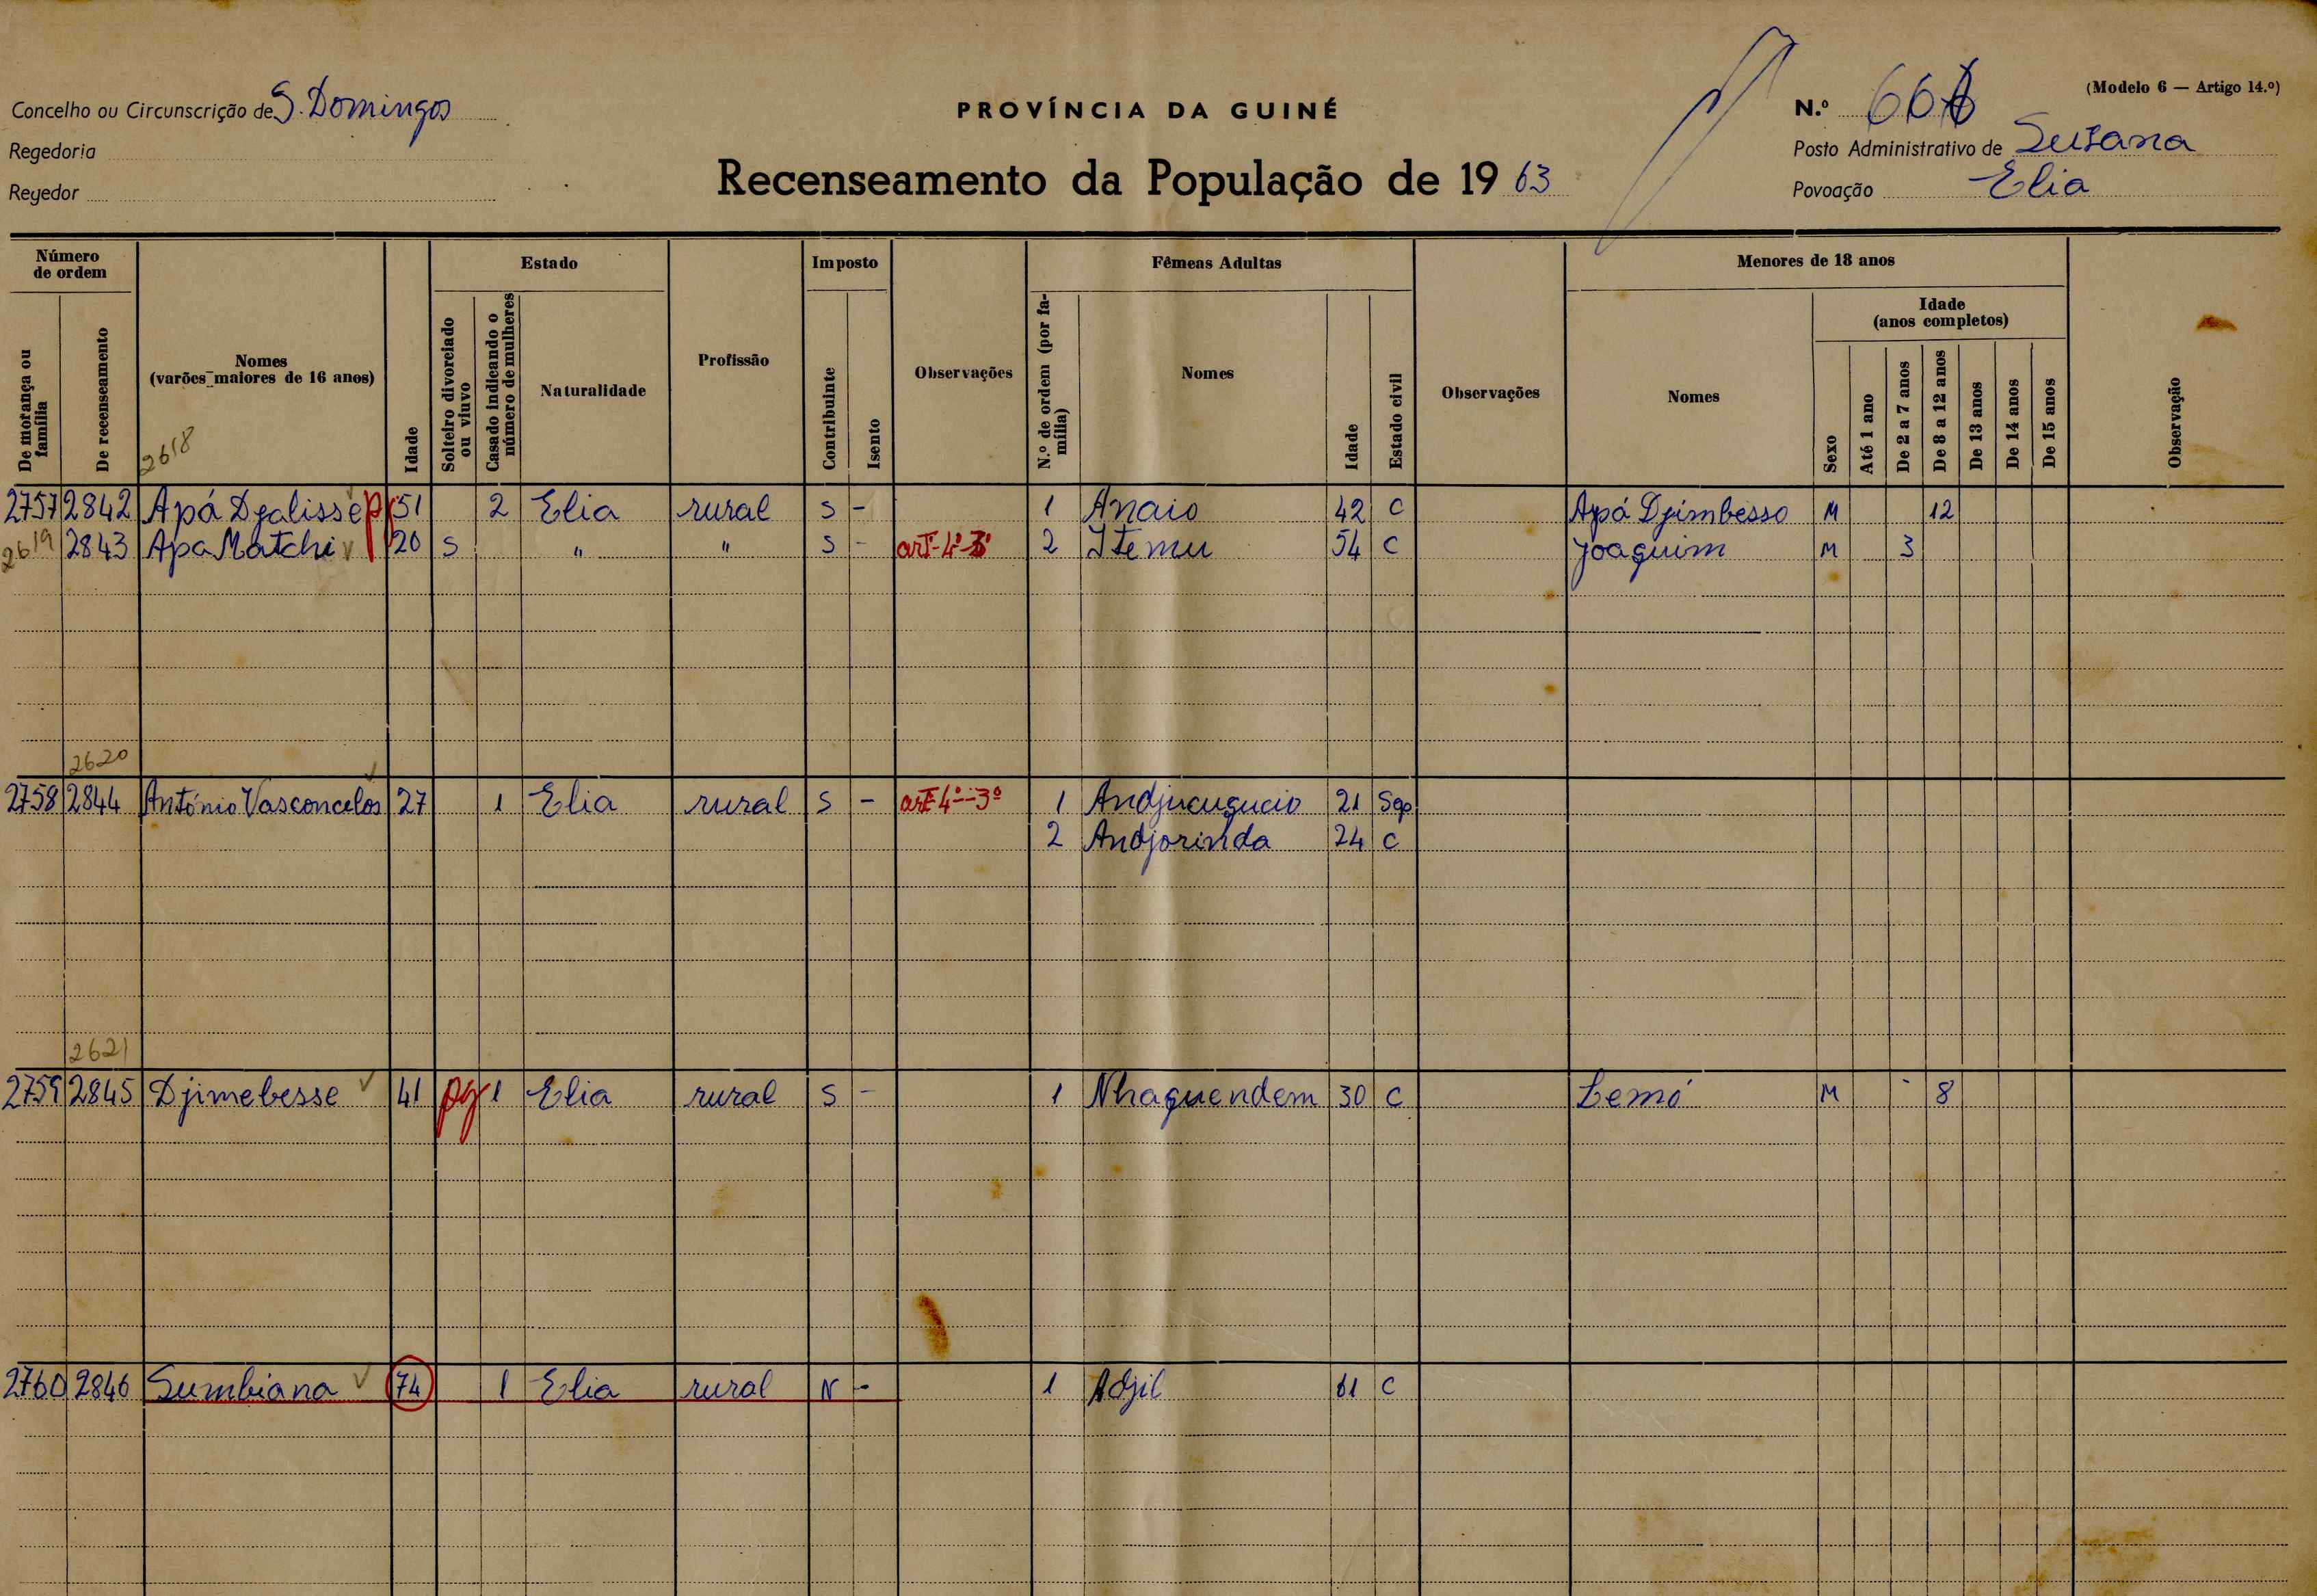 Concelho ou Circunscrição de S. Domingos
Regedoria
Regedor
PROVÍNCIA DA GUINÉ
Recenseamento da População de 19 63
(Modelo 6 — Artigo 14.º)
N.º
Posto Administrativo de Susana
Povoação Elia
Número de ordem
De morança ou família
De recenseamento
Nomes (varões maiores de 16 anos)
Idade
Estado
Solteiro divorciado ou viuvo
Casado indicando o número de mulheres
Naturalidade
Profissão
Imposto
Contribuinte
Isento
Observações
Fêmeas Adultas
N.º de ordem (por família)
Nomes
Idade
Estado civil
Observações
Menores de 18 anos
Nomes
Sexo
Idade (anos completos)
Até 1 ano
De 2 a 7 anos
De 8 a 12 anos
De 13 anos
De 14 anos
De 15 anos
Observação
2618
2757 2842 Apá Djalisse pg 51 2 Elia rural S - 1 Anaio 42 C Apá Djimbesso M 12
2619 2843 Apa Matchi 20 S " " S - artº 4º-3º 2 Itemu 54 C Joaquim M 3
2620
2758 2844 António Vasconcelos 27 1 Elia rural S - artº 4º-3º 1 Andjucugucio 21 Sep
2 Andjorinda 24 C
2621
2759 2845 Djimebesse 41 pg 1 Elia rural S - 1 Nhaguendem 30 C Lemó M 8
2760 2846 Sumbiana 74 1 Elia rural N - 1 Adjil 61 C